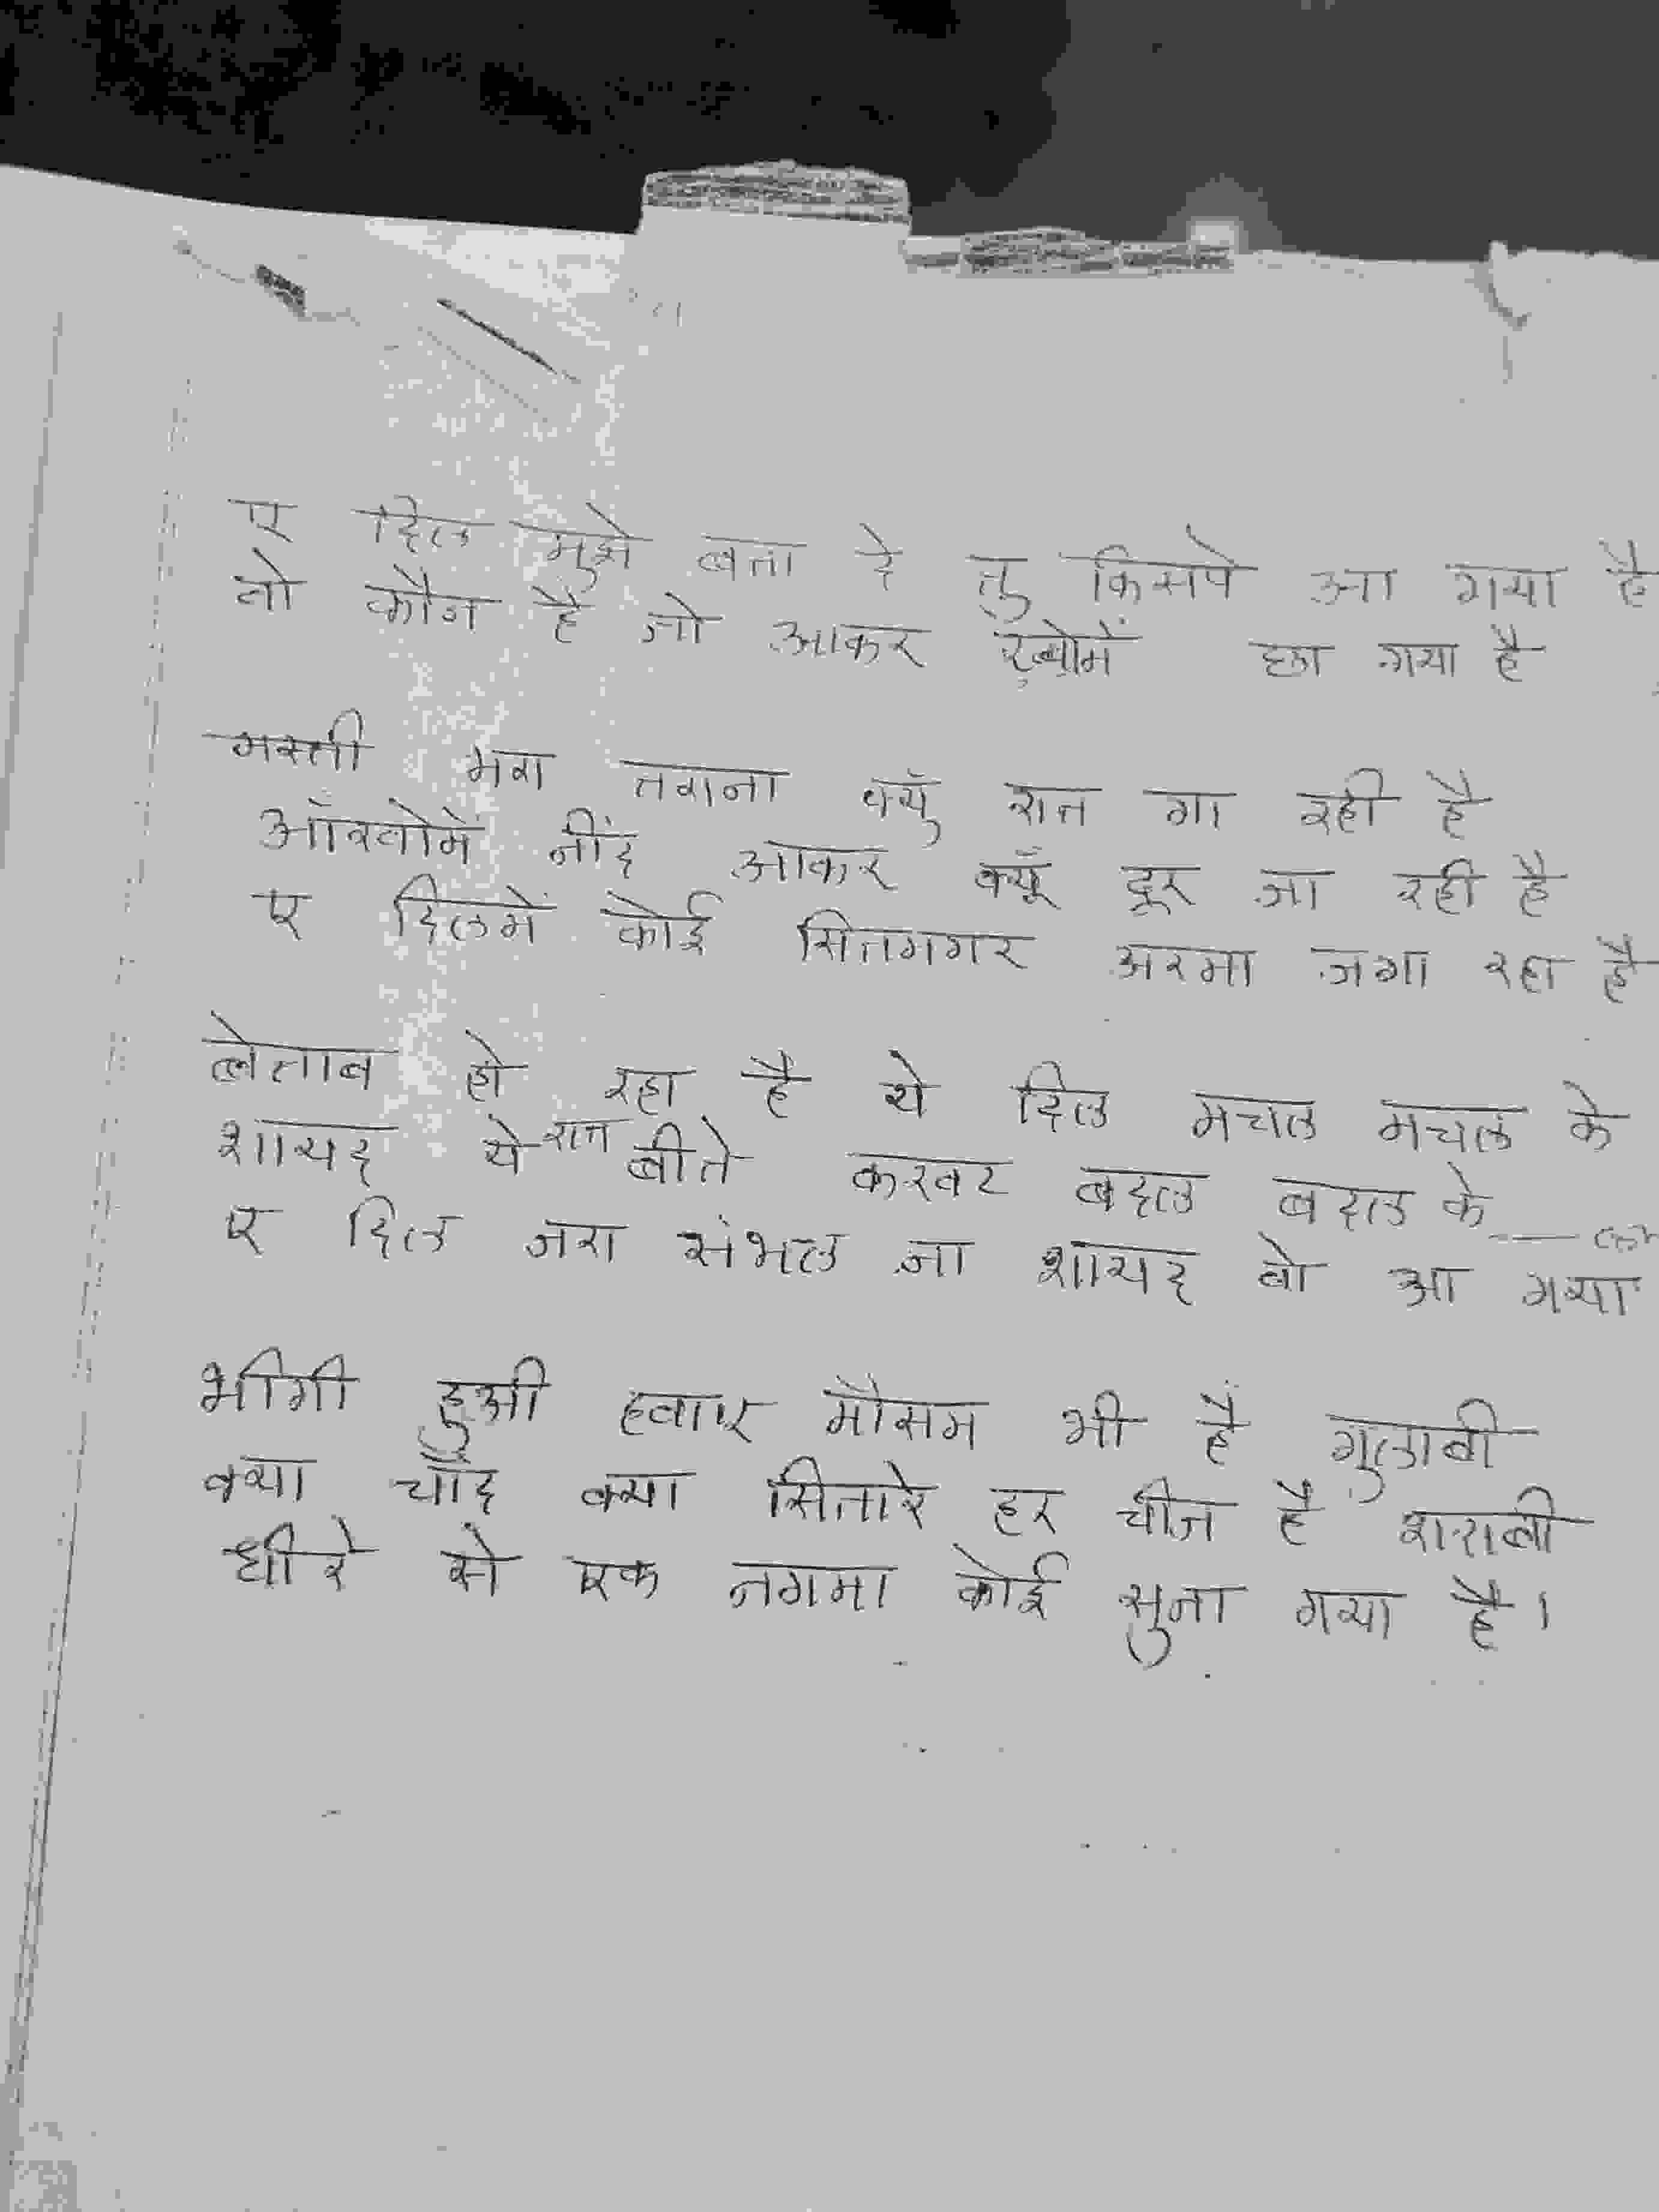 ए दिल मुझे बता दे तु किसपे आ गया है
वो कौन है जो आकर ख्वोमें छा गया है
मस्ती भरा तराना क्युँ रात गा रही है
आँखोमें नींद आकर क्यूँ दूर जा रही है
ए दिलमें कोई सितमगर अरमा जगा रहा है
बेताब हो रहा है ये दिल मचल मचल के
शायद ये रात बीते करवट बदल बदल के
ए दिल जरा संभल जा शायद वो आ गया
भीगी हुओ हवाए मौसम भी है गुलाबी
क्या चाँद क्या सितारे हर चीज है शराबी
धीरे से एक नगमा कोई सुना गया है।